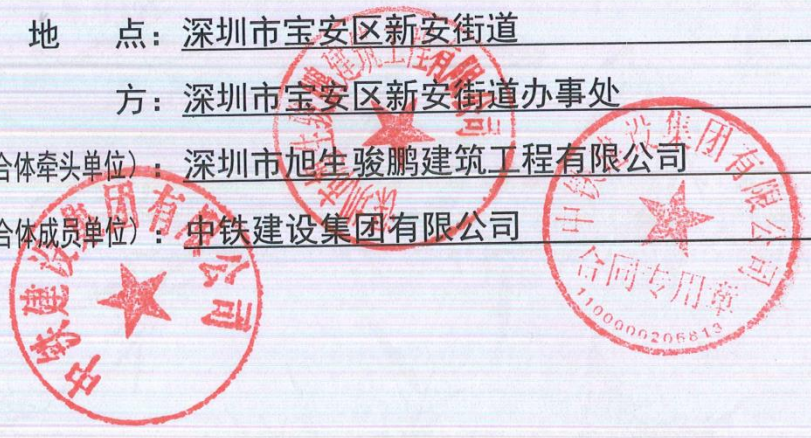 地 点：深圳市宝安区新安街道
方：深圳市宝安区新安街道办事处
合体牵头单位）：深圳市旭生骏鹏建筑工程有限公司
合体成员单位）：中铁建设集团有限公司
深圳市旭生骏鹏建筑工程有限公司
中铁建设集团有限公司
合同专用章
1100000206813
中铁建设集团有限公司